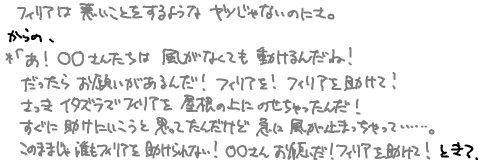 フィリアは悪いことをするようなヤツじゃないのにさ。
からの、
*「あ！〇〇さんたちは 風がなくても動けるんだね！
だったらお願いがあるんだ！フィリアを！フィリアを助けて！
さっきイタズラでフィリアを屋根の上にのせちゃったんだ！
すぐに助けにいこうと思ってたんだけど急に風が止まっちゃって……。
このままじゃ誰もフィリアを助けられない！〇〇さんお願いだ！フィリアを助けて！ときて、